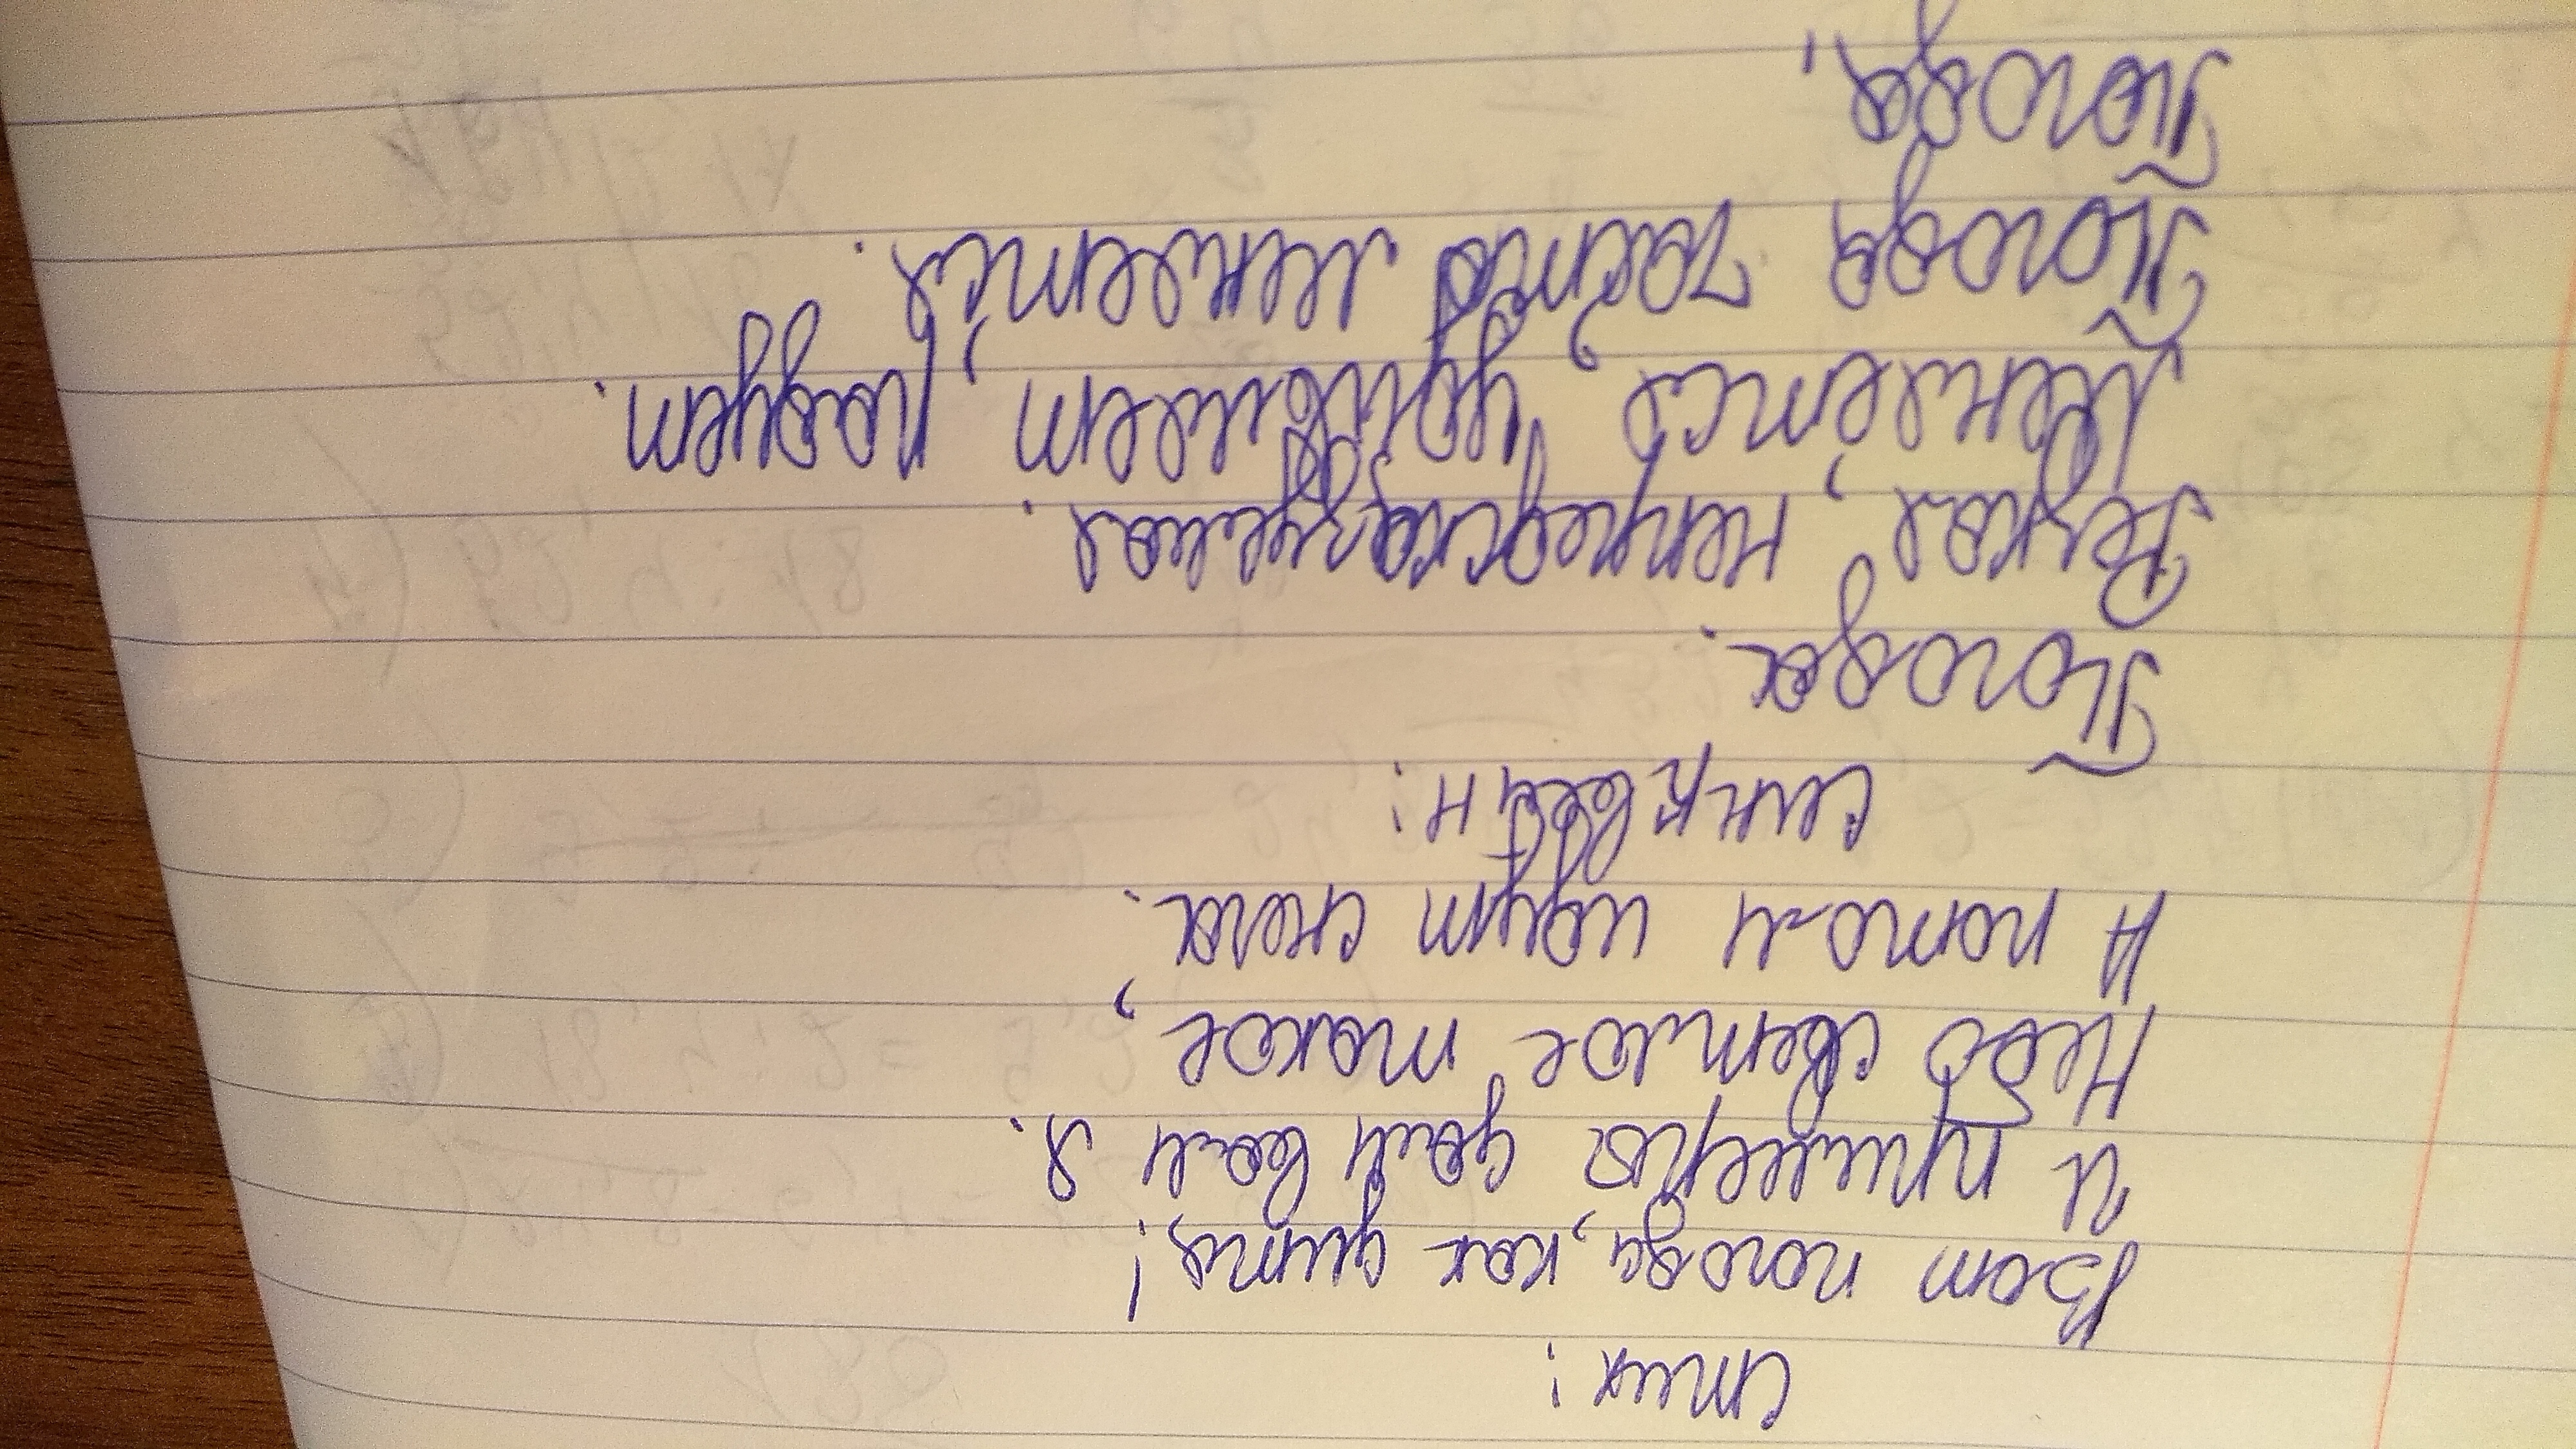 стих:
Вот погода, как дитя!
И пример дам вам я.
Небо светлое такое,
А потом идут снега.
синквеин:
Погода.
Резкая, непредсказуемая.
Меняется, удивляет, радует.
Погода часто меняется.
Погода.